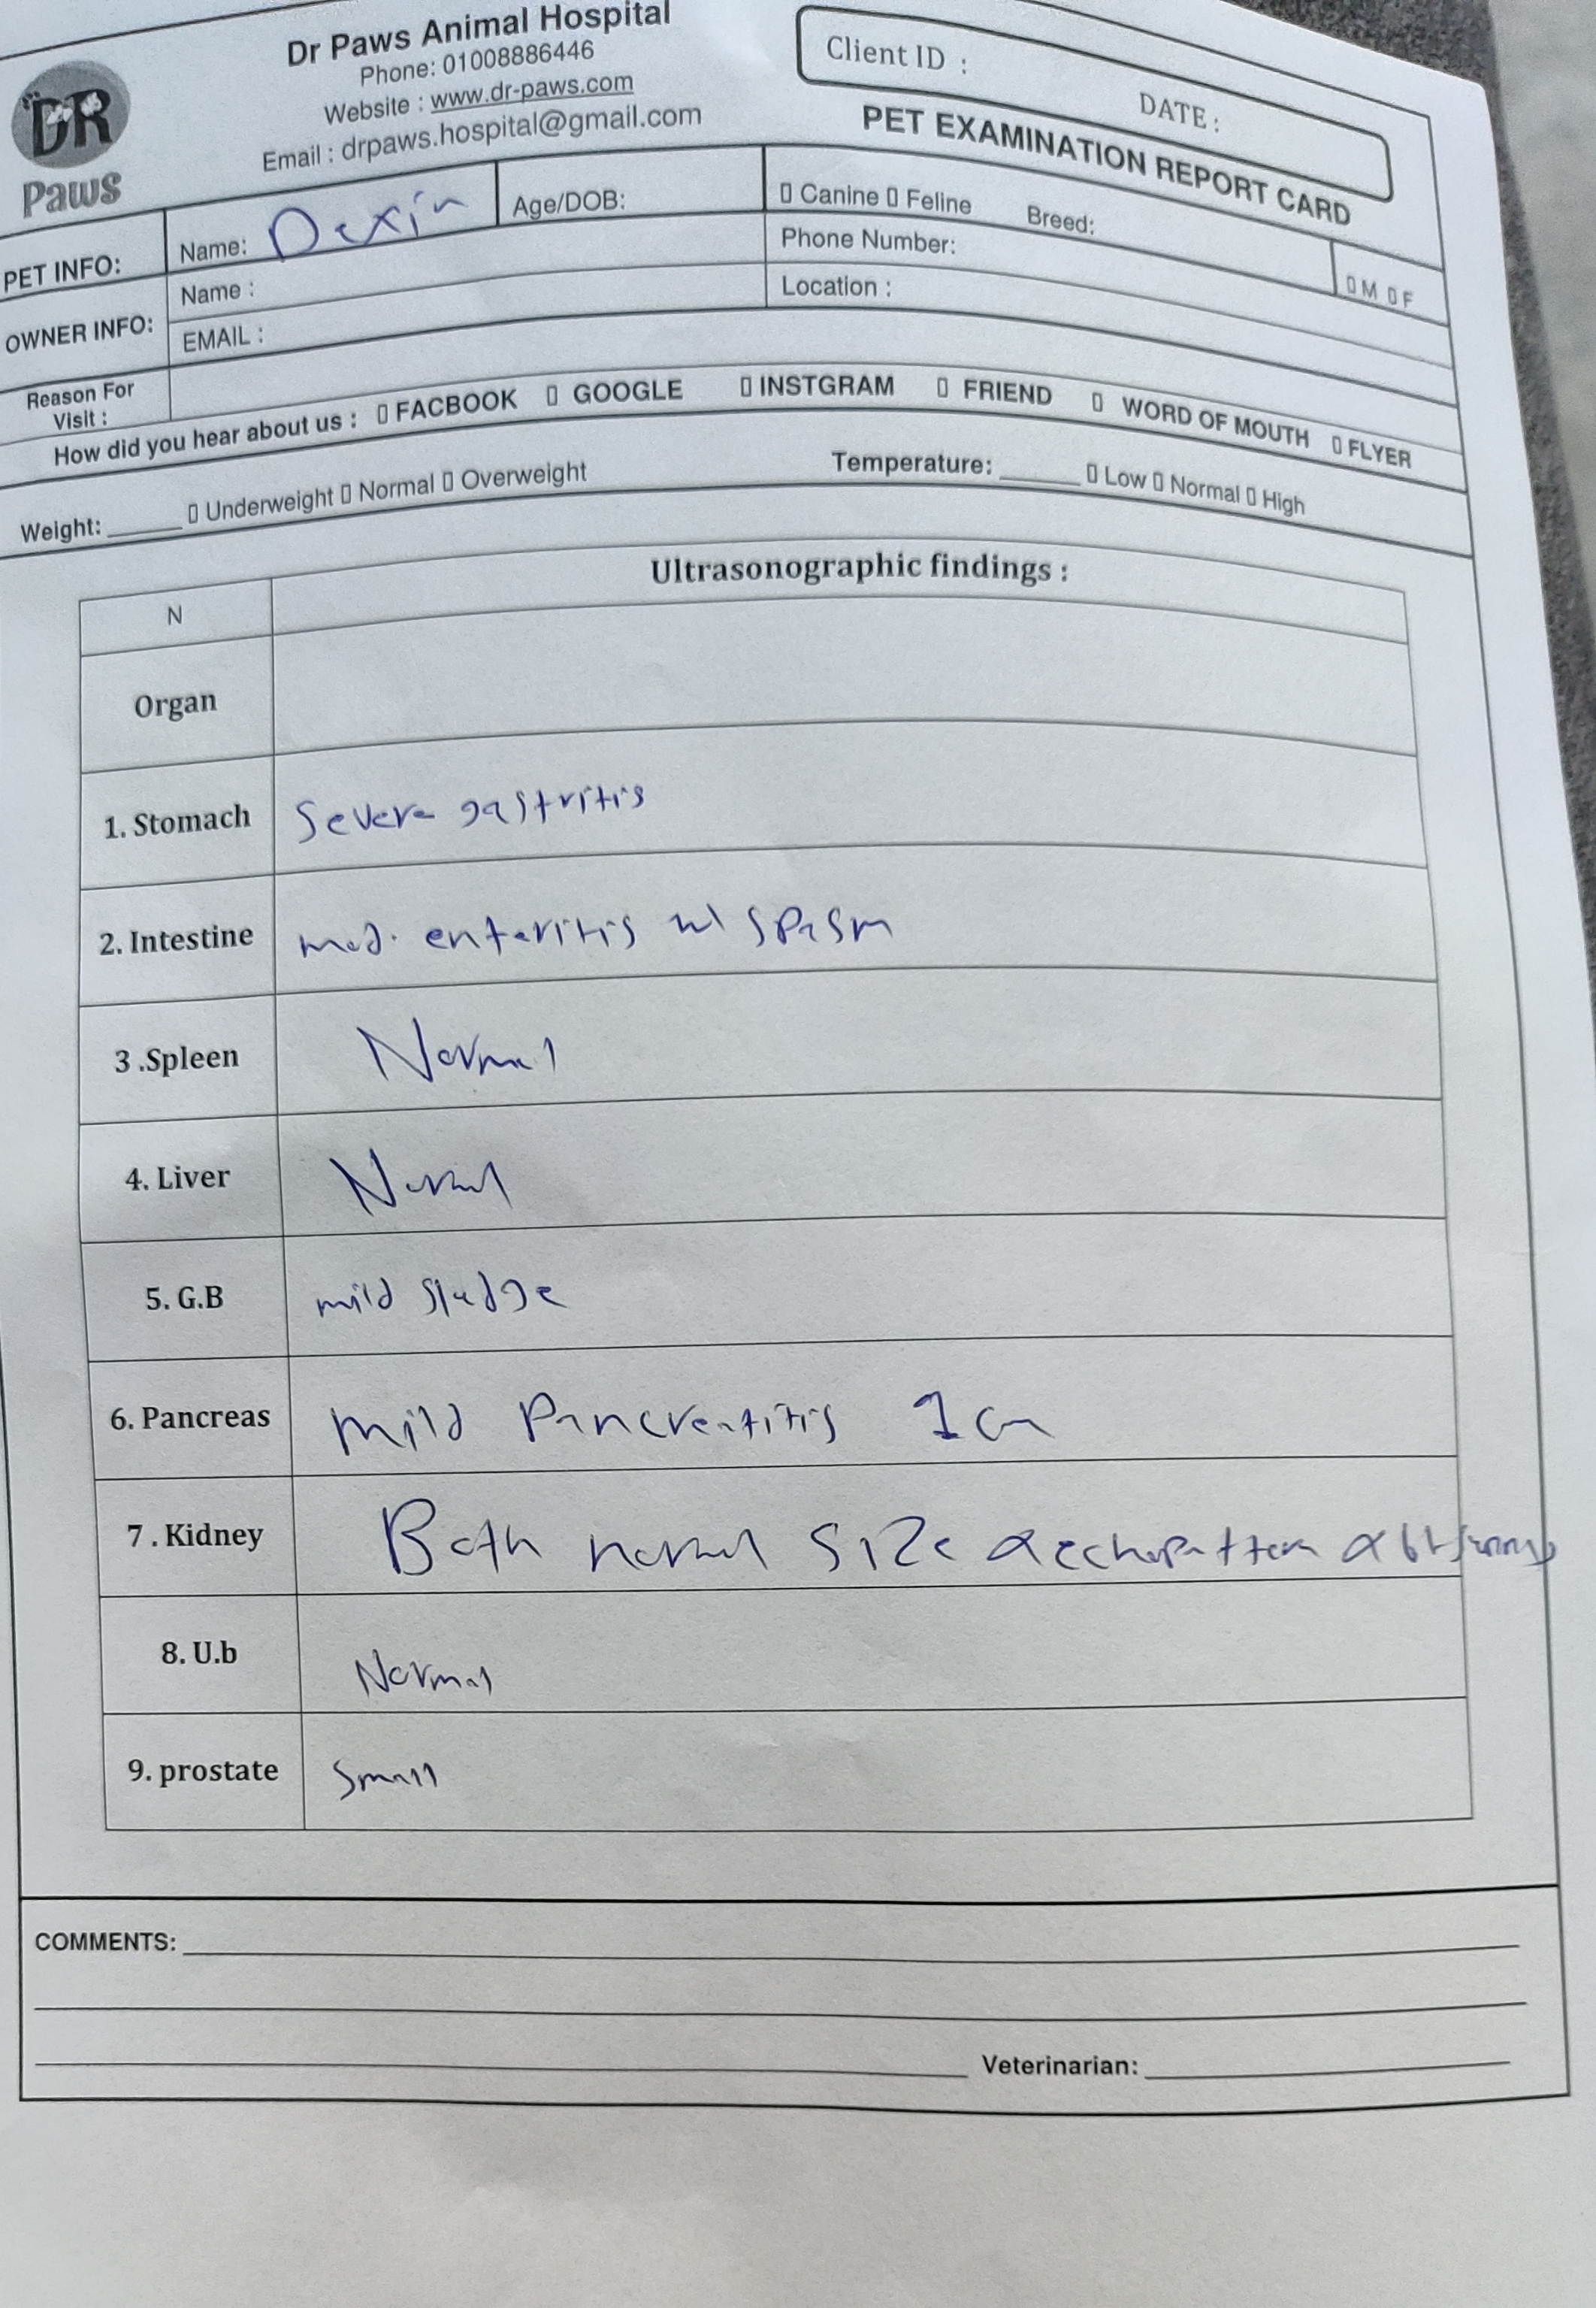 Dr Paws Animal Hospital
Phone: 01008886446
Website : www.dr-paws.com
Email : drpaws.hospital@gmail.com
DR
Paws
Client ID :
DATE :
PET EXAMINATION REPORT CARD
PET INFO:
Name: Dexin
Age/DOB:
▯ Canine ▯ Feline Breed:
▯ M ▯ F
OWNER INFO:
Name :
Phone Number:
EMAIL :
Location :
Reason For
Visit :
How did you hear about us : ▯ FACBOOK ▯ GOOGLE ▯ INSTGRAM ▯ FRIEND ▯ WORD OF MOUTH ▯ FLYER
Weight: ______ ▯ Underweight ▯ Normal ▯ Overweight Temperature: ______ ▯ Low ▯ Normal ▯ High
N
Ultrasonographic findings :
Organ
1. Stomach Severe gastritis
2. Intestine mod. enteritis w/ spasm
3 .Spleen Normal
4. Liver Normal
5. G.B mild sludge
6. Pancreas mild Pancreatitis 1 cm
7 . Kidney Both normal size & echopattern &
8. U.b Normal
9. prostate Small
COMMENTS:
Veterinarian: